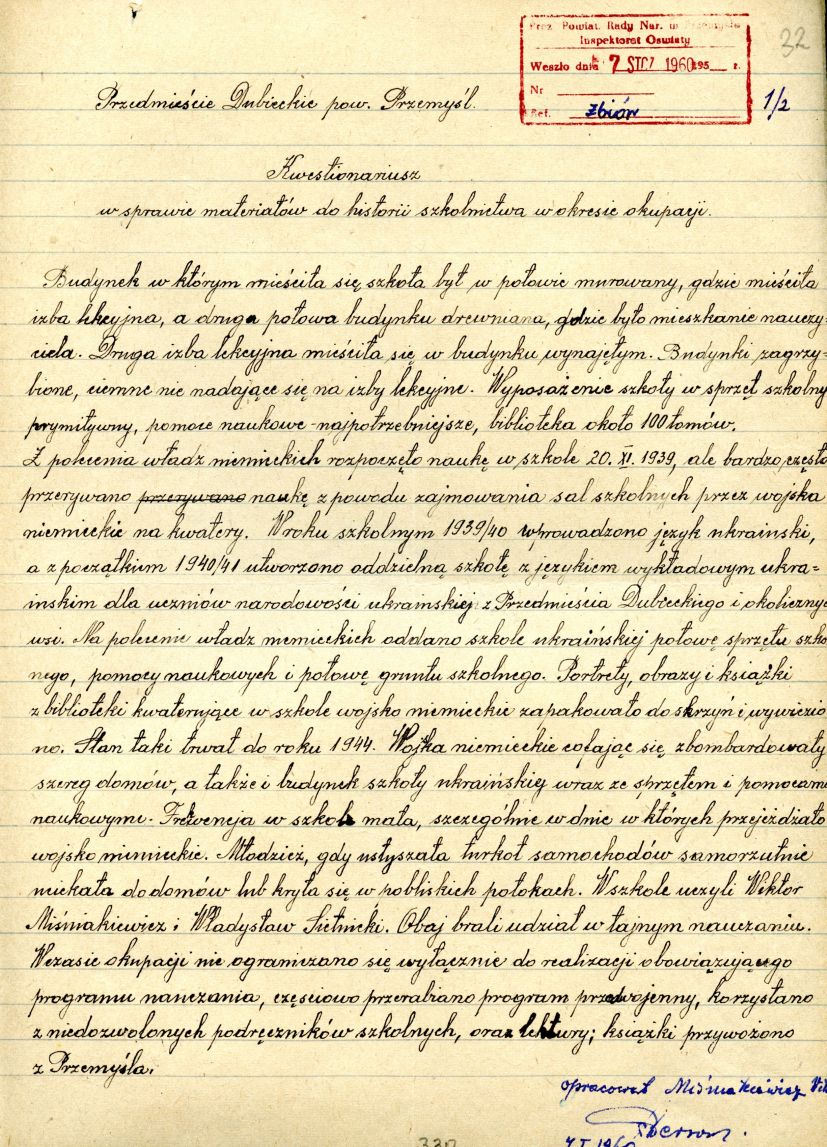 32
Prez. Powiat. Rady Nar. w Przemyślu
Inspektorat Oświaty
Weszło dnia 7 STCZ 1960 195 r.
Nr
Ref. zbiór
1/2
Przedmieście Dubieckie pow. Przemyśl.
Kwestionariusz
w sprawie materiałów do historii szkolnictwa w okresie okupacji.
Budynek w którym mieściła się szkoła był w połowie murowany, gdzie mieściła
izba lekcyjna, a druga połowa budynku drewniana, gdzie było mieszkanie nauczy-
ciela. Druga izba lekcyjna mieściła się w budynku wynajętym. Budynki zagrzy-
bione, ciemne nie nadające się na izby lekcyjne. Wyposażenie szkoły w sprzęt szkolny
prymitywny, pomoce naukowe - najpotrzebniejsze, biblioteka około 100 tomów.
Z polecenia władz niemieckich rozpoczęto naukę w szkole 20. XI. 1939, ale bardzo często
przerywano przerywano naukę z powodu zajmowania sal szkolnych przez wojska
niemieckie na kwatery. W roku szkolnym 1939/40 wprowadzono język ukrainski,
a z początkiem 1940/41 utworzono oddzielną szkołę z językiem wykładowym ukra-
inskim dla uczniów narodowości ukrainskiej z Przedmieścia Dubieckiego i okolicznyc
wsi. Na polecenie władz niemieckich oddano szkole ukraińskiej połowę sprzętu szko
nego, pomocy naukowych i połowę gruntu szkolnego. Portrety, obrazy i książki
z biblioteki kwaterujące w szkole wojsko niemieckie zapakowało do skrzyń i wywiezio
no. Stan taki trwał do roku 1944. Wojska niemieckie cofając się zbombardowały
szereg domów, a także i budynek szkoły ukraińskiej wraz ze sprzętem i pomocami
naukowymi. Frekwencja w szkole mała, szczególnie w dnie w których przejeżdżało
wojsko niemieckie. Młodzież, gdy usłyszała turkot samochodów samorzutnie
uciekała do domów lub kryła się w pobliskich potokach. W szkole uczyli Wiktor
Miśniakiewicz i Władysław Sietnicki. Obaj brali udział w tajnym nauczaniu.
W czasie okupacji nie ograniczano się wyłącznie do realizacji obowiązującego
programu nauczania, częściowo przerabiano program przedwojenny, korzystano
z niedozwolonych podręczników szkolnych, oraz lektury; książki przywożono
z Przemyśla.
opracował Miśniakiewicz Wik
7 I 1960
330